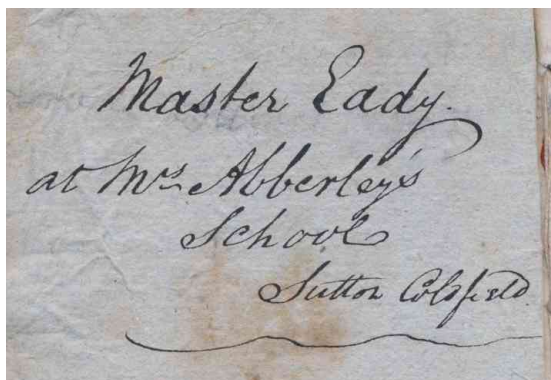 Master Eady.
at Mrs Abberley's
School
Sutton Coldfield